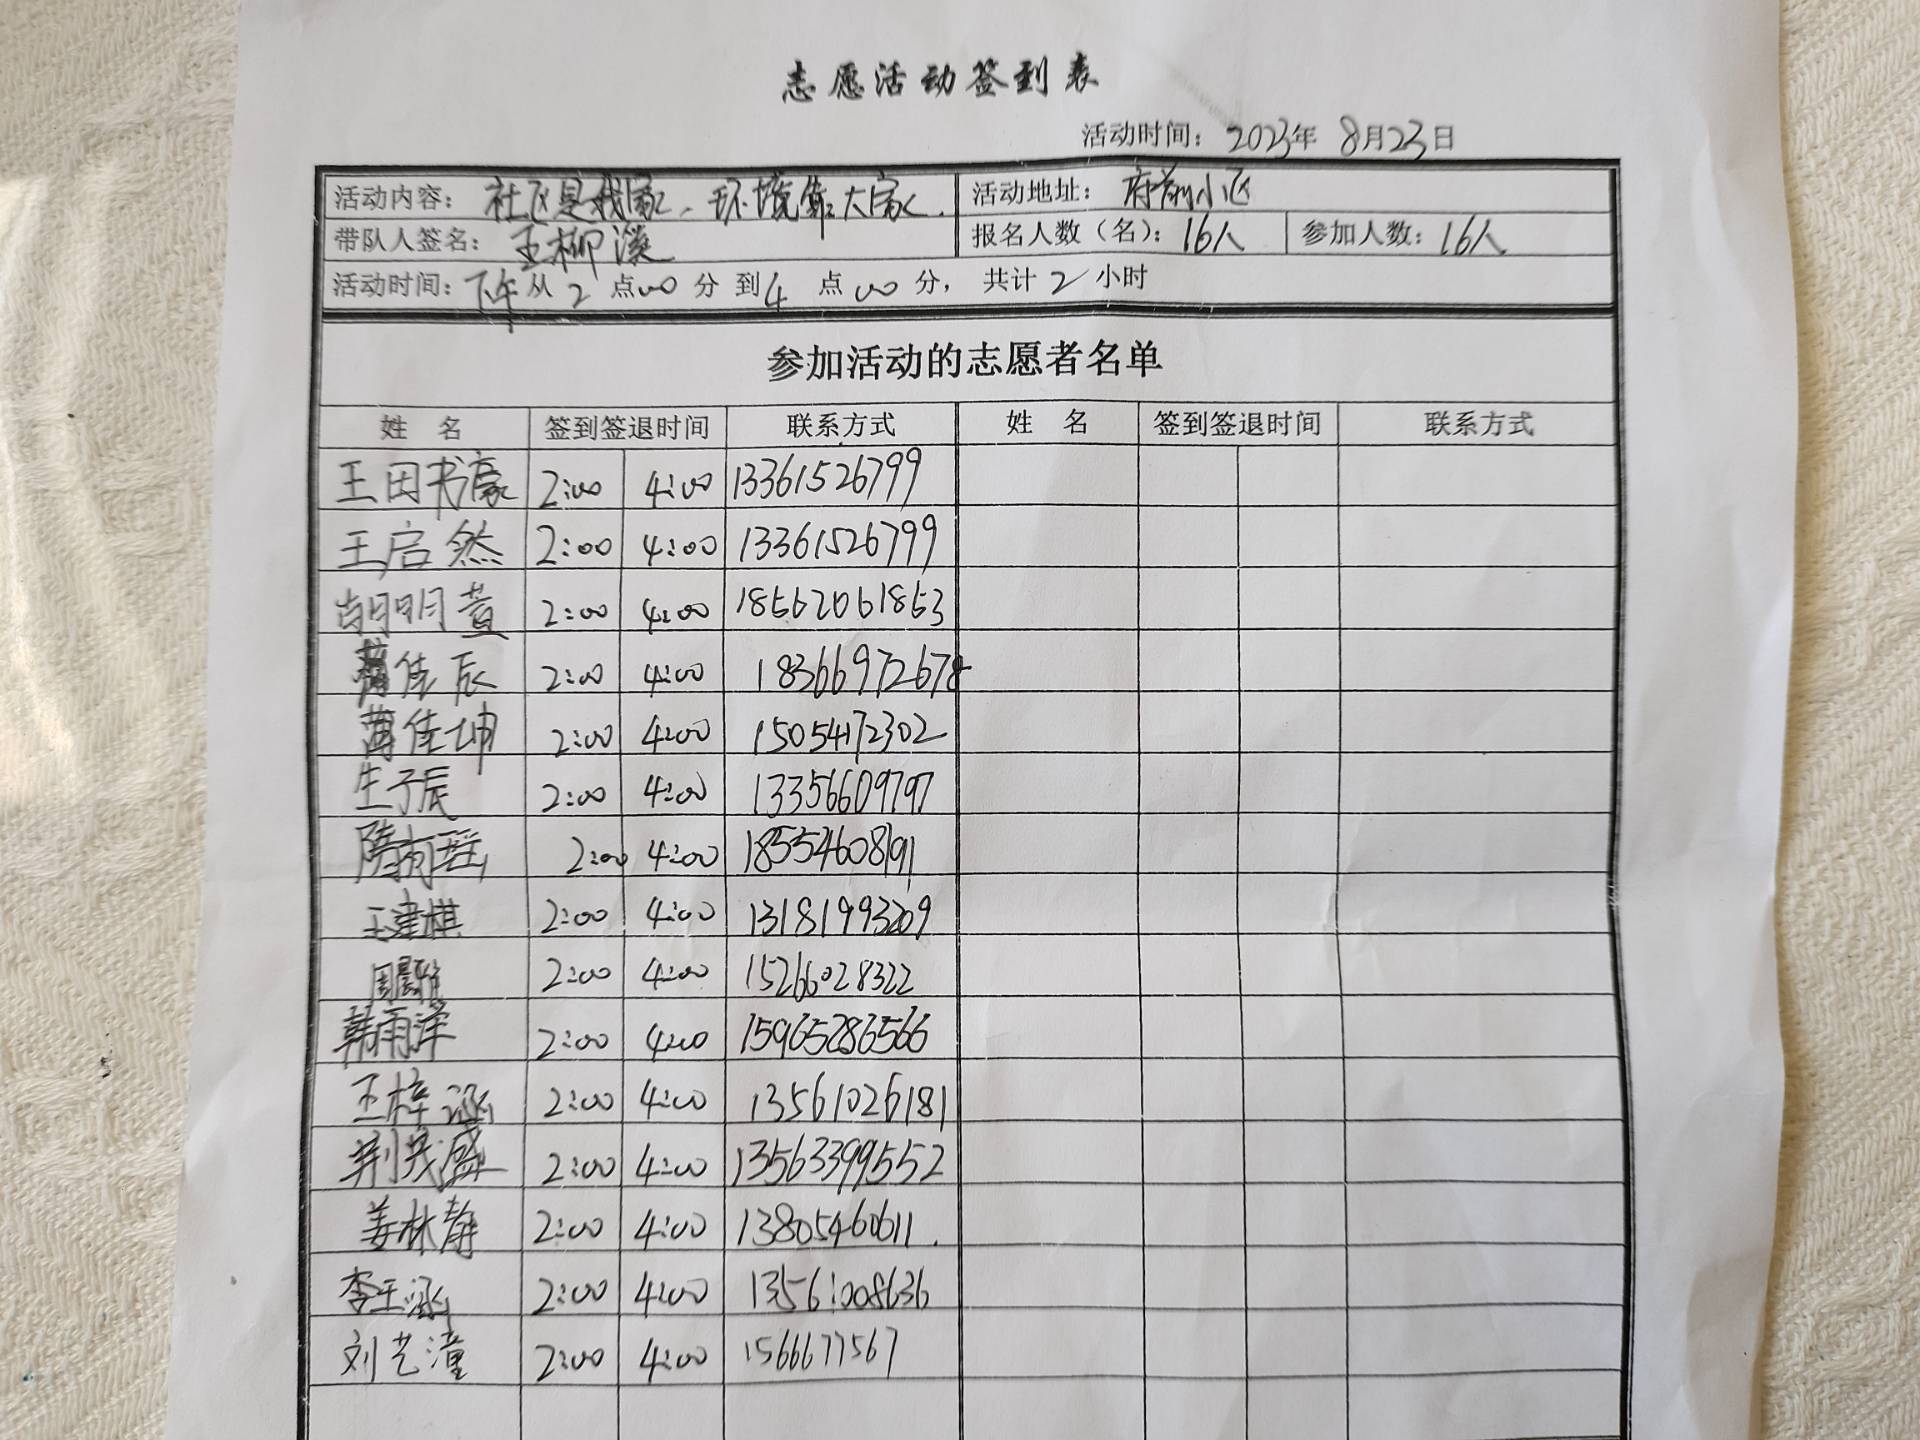 志愿活动签到表
活动时间：2023年 8月23日
活动内容：社区是我家、环境靠大家. 活动地址：府前小区
带队人签名：王柳溪 报名人数（名）：16人 参加人数：16人
活动时间：下午从 2 点00分 到4 点00分，共计2小时
参加活动的志愿者名单
姓 名 签到签退时间 联系方式 姓 名 签到签退时间 联系方式
王田书豪 2:00 4:00 13361526799
王启然 2:00 4:00 13361526799
胡明萱 2:00 4:00 18562061853
薄佳辰 2:00 4:00 18366972678
薄佳坤 2:00 4:00 15054172302
生子辰 2:00 4:00 13356609797
隋 2:00 4:00 18554608191
王建棋 2:00 4:00 13181993209
周 2:00 4:00 15266028322
韩雨泽 2:00 4:00 15965286566
王梓涵 2:00 4:00 13561026181
荆茂盛 2:00 4:00 13563399552
姜林静 2:00 4:00 13805460611.
李玉涵 2:00 4:00 13561008636
刘艺潼 2:00 4:00 1566677567